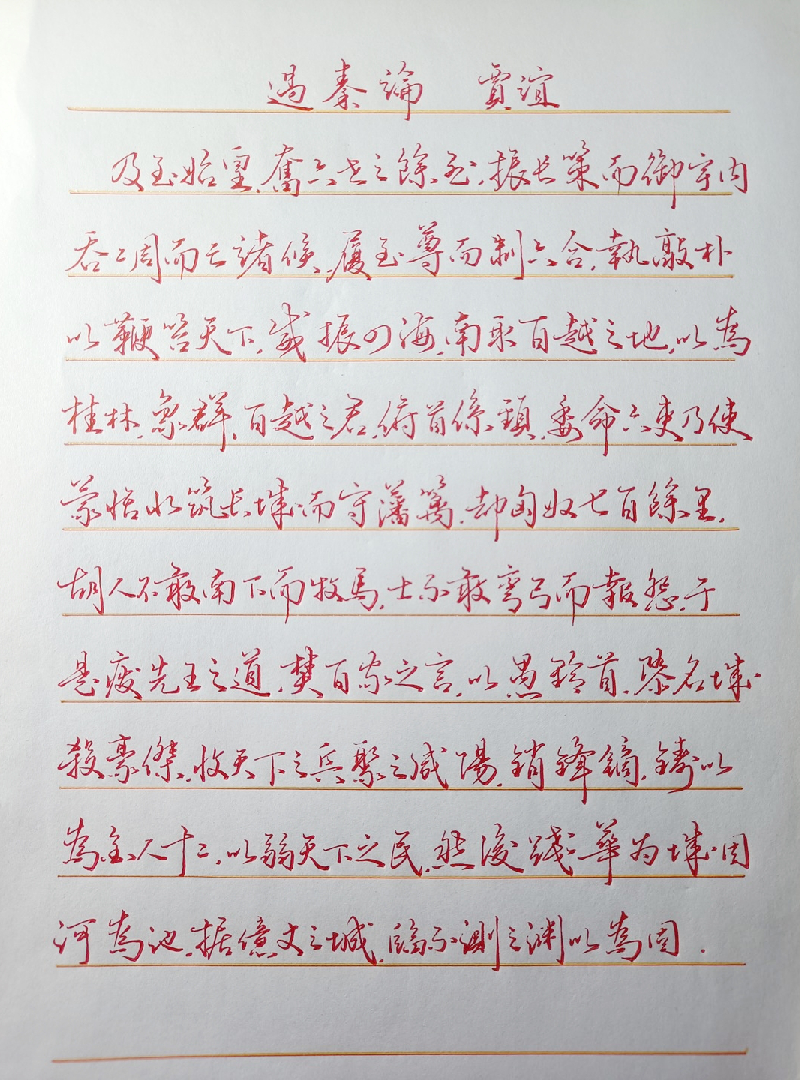 過秦論 賈誼
及至始皇,奮六世之餘烈,振長策而御宇内
吞二周而亡諸候,履至尊而制六合,執敲朴
以鞭笞天下,威振四海,南取百越之地,以為
桂林,象群,百越之君,俯首係頸,委命下吏乃使
蒙恬北筑長城而守藩籬,却匈奴七百餘里,
胡人不敢南下而牧馬,士不敢弯弓而報怨,于
是废先王之道,焚百家之言,以愚黔首,隳名城
殺豪傑,收天下之兵聚之咸陽,銷鋒鏑,鑄以
為金人十二,以弱天下之民,然後踐華为城因
河為池,据億丈之城,臨不測之渊以為固.